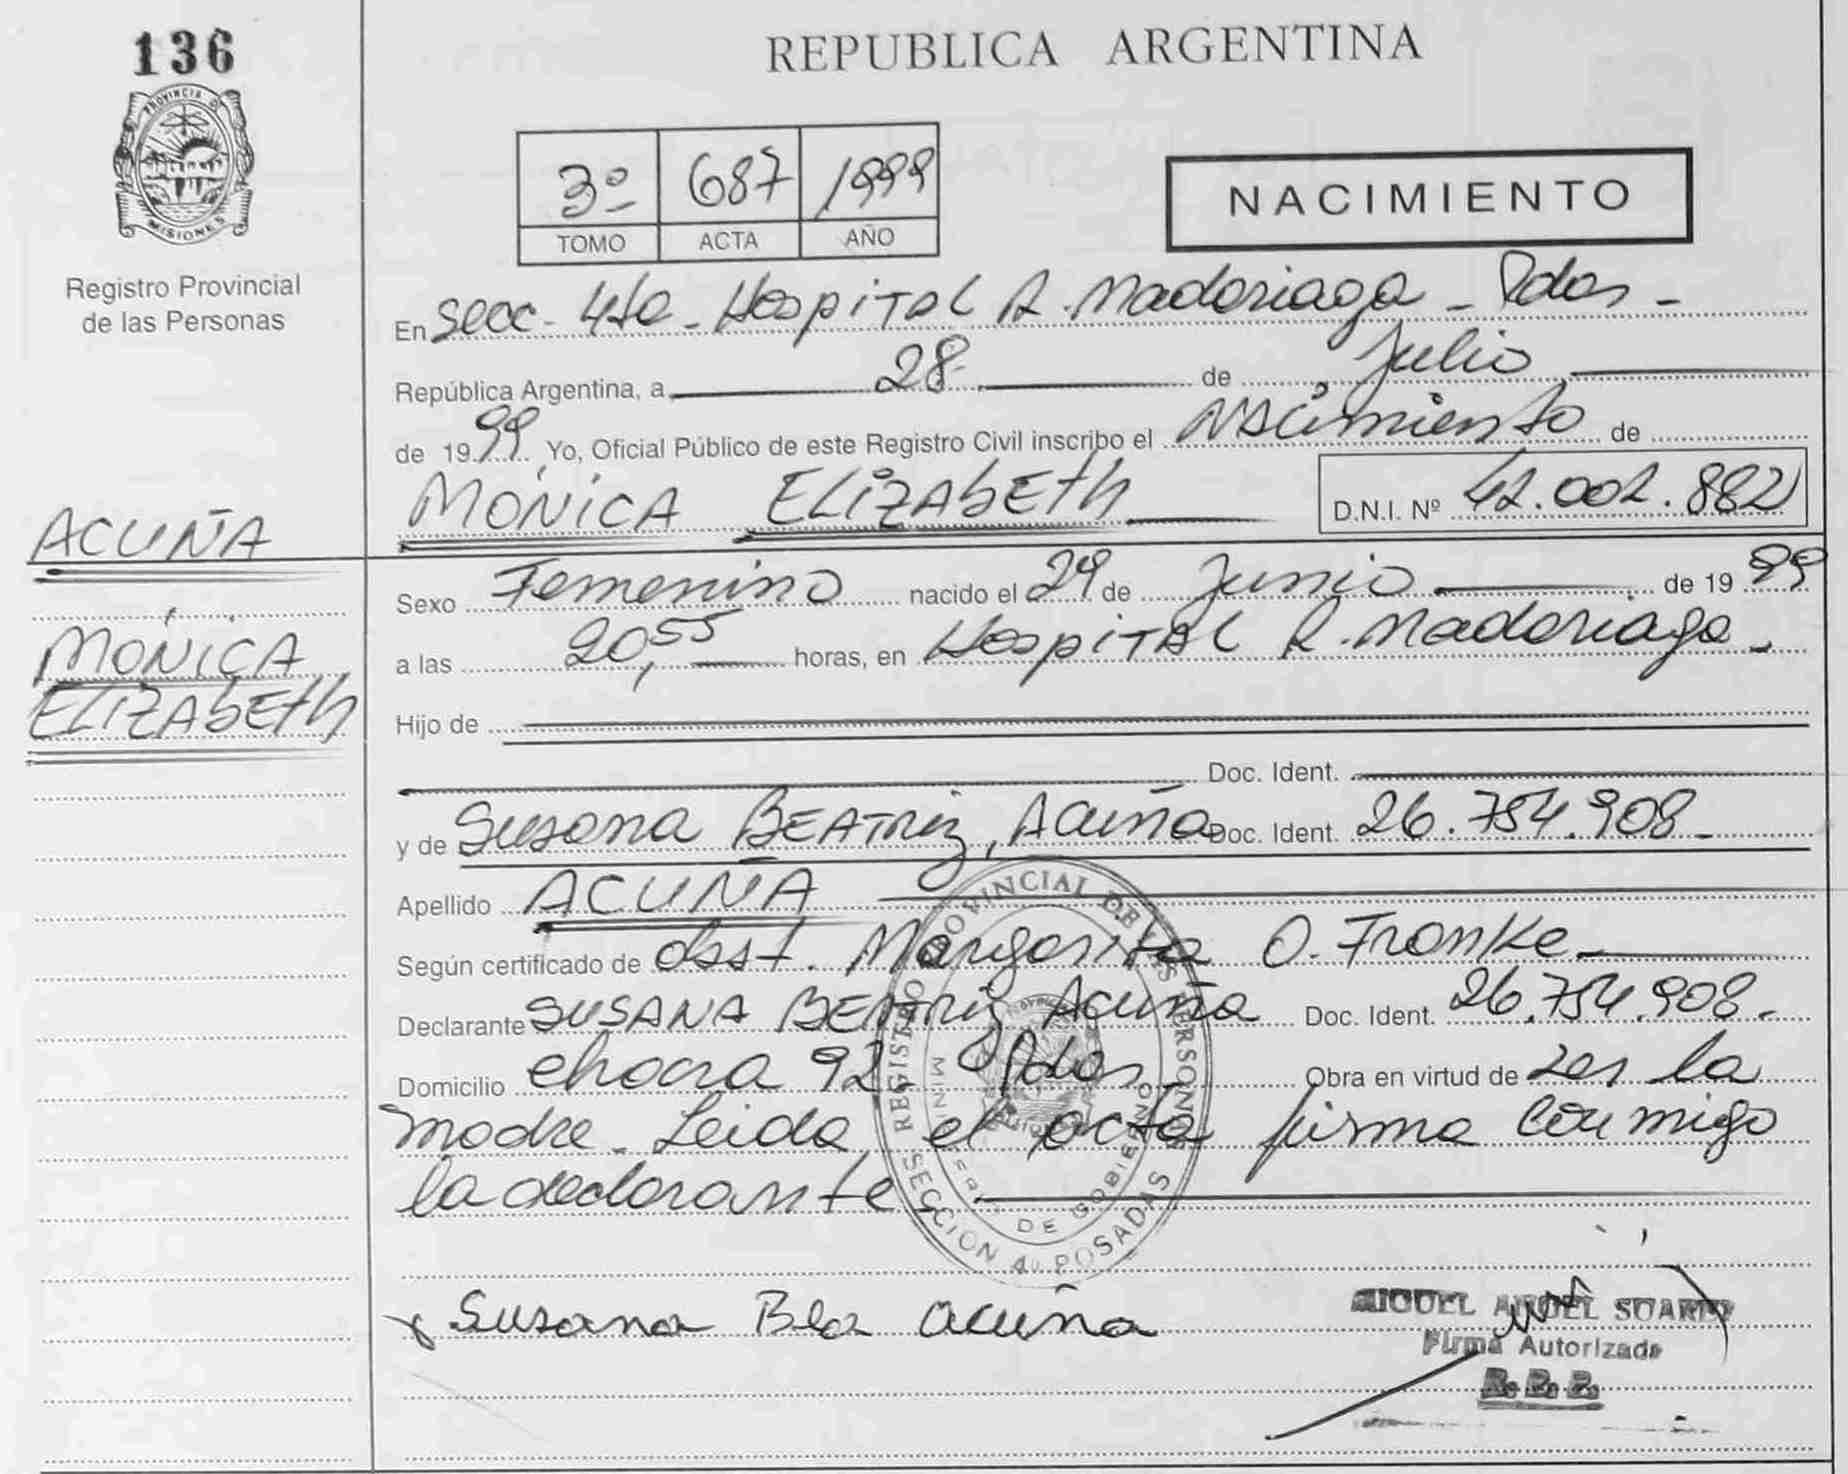 136
PROVINCIA D
MISIONES
Registro Provincial
de las Personas
REPUBLICA ARGENTINA
3º 687 1999
TOMO ACTA AÑO
NACIMIENTO
En Secc. 4ta. Hospital R. Madariaga - Pdas -
República Argentina, a 28 de Julio
de 1999 Yo, Oficial Público de este Registro Civil inscribo el Nacimiento de
MÓNICA ELIZABETH D.N.I. Nº 42.002.882
ACUÑA
MÓNICA
ELIZABETH
Sexo Femenino nacido el 29 de Junio de 1999
a las 20,55 horas, en Hospital R. Madariaga -
Hijo de
Doc. Ident.
y de Susana BEATRIZ, Acuña Doc. Ident. 26.754.908 -
Apellido ACUÑA
Según certificado de Obst. Margarita O. Franke
Declarante SUSANA BEATRIZ Acuña Doc. Ident. 26.754.908 -
Domicilio chacra 92 - Pdas - Obra en virtud de ser la
madre - Leida el acta firma conmigo
la declarante
REGISTRO PROVINCIAL DE LAS PERSONAS
MINISTERIO DE GOBIERNO
SECCION 4ta POSADAS
x Susana Bea Acuña
MIGUEL ANGEL SUAREZ
Firma Autorizada